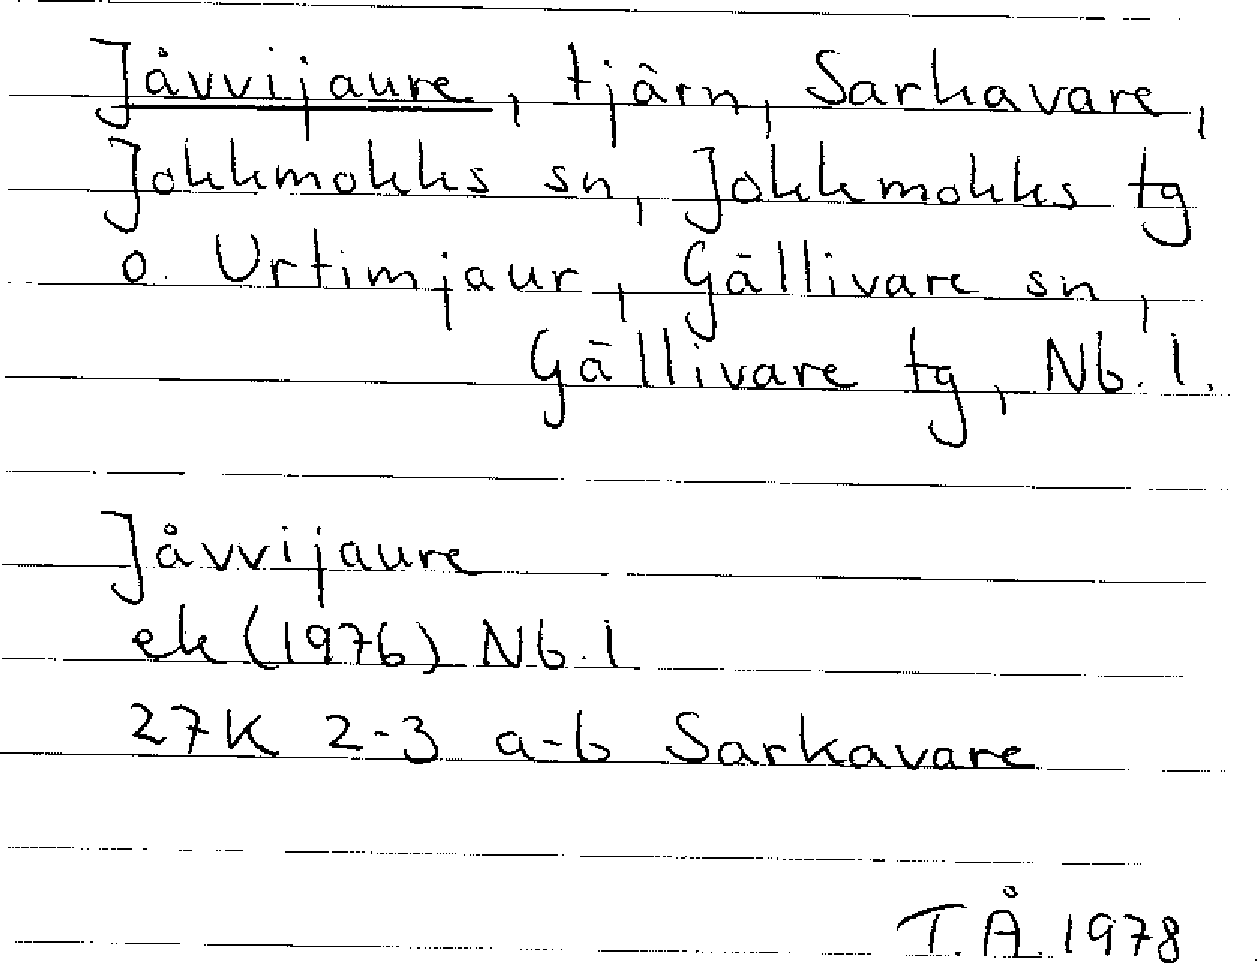 Jåvvijaure, tjärn, Sarkavare,
Jokkmokks sn, Jokkmokks tg
o. Urtimjaur, Gällivare sn,
Gällivare tg, Nb. l.
Jåvvijaure
ek (1976) Nb. l
27K 2-3 a-b Sarkavare
T.Å. 1978